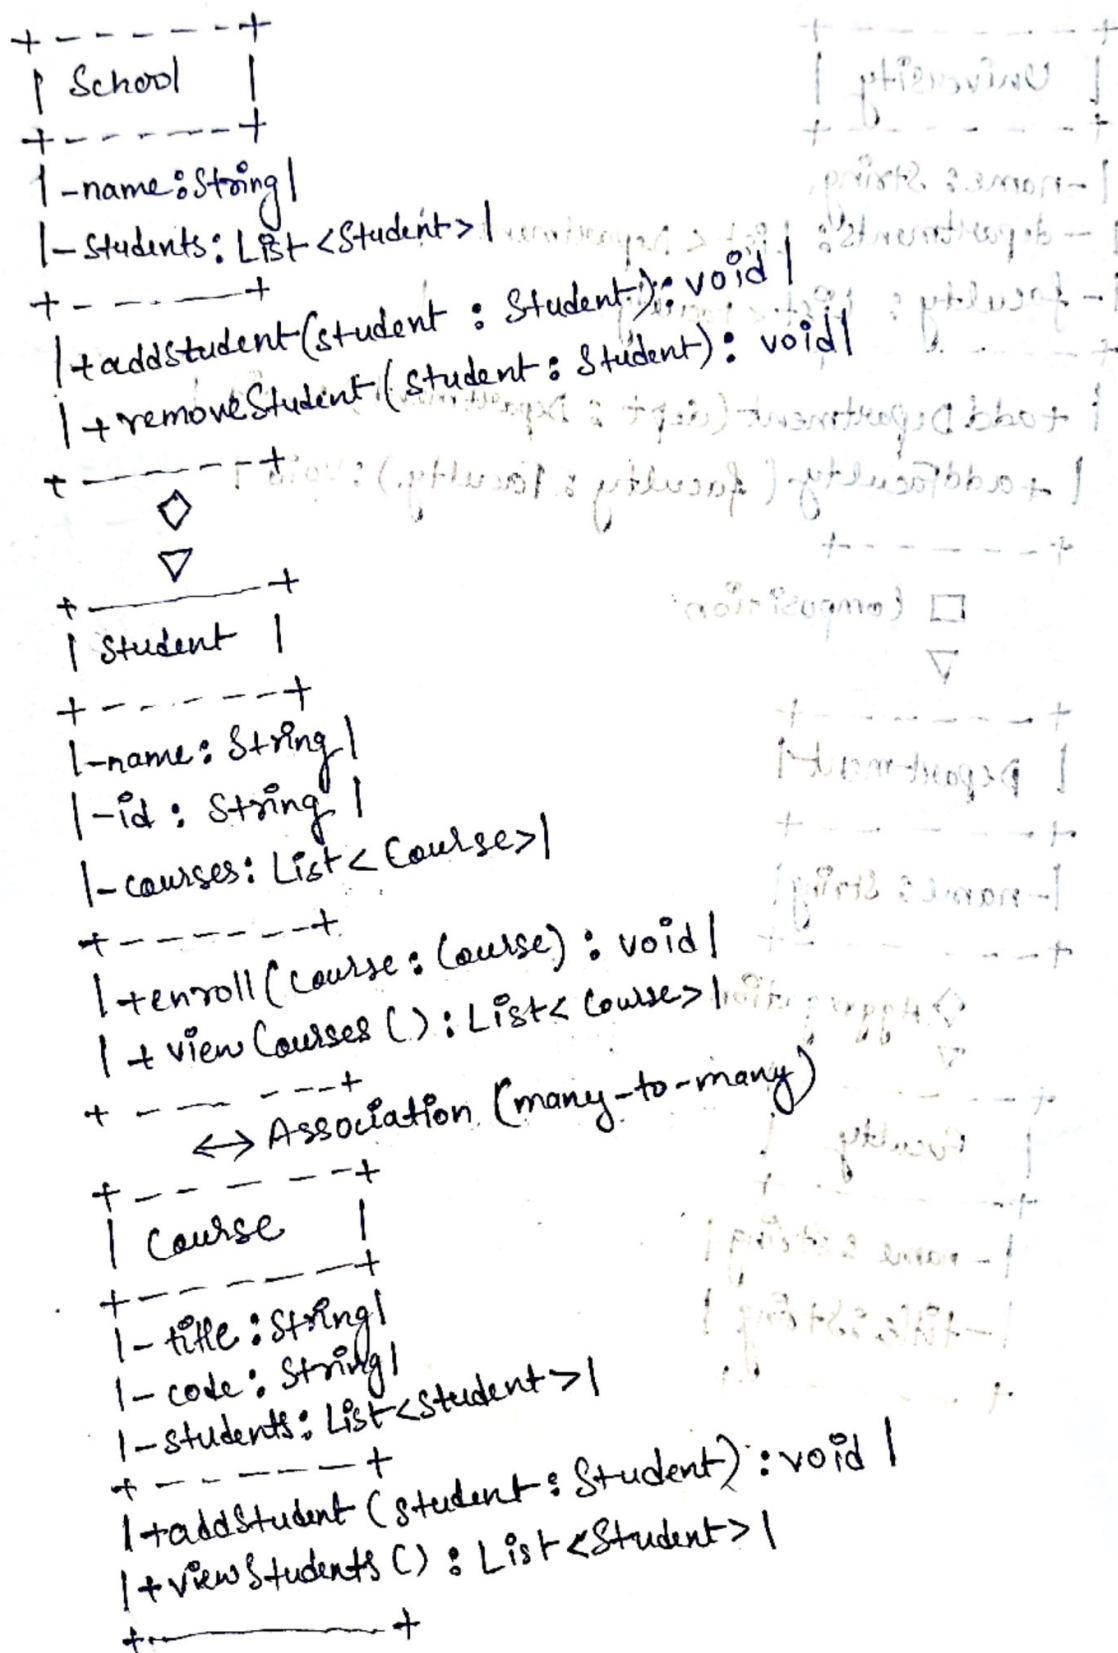 +------+
| School |
+------+
|-name:String|
|-students: List<Student>|
+------+
|+addstudent(student : Student): void|
|+removeStudent(student: Student): void|
+------+
◇
▽
+------+
| Student |
+------+
|-name: String|
|-id: String|
|-courses: List<Course>|
+------+
|+enroll(course: Course): void|
|+viewCourses(): List<Course>|
+------+
↔ Association (many-to-many)
+------+
| Course |
+------+
|-title:String|
|-code: String|
|-students: List<student>|
+------+
|+addStudent(student: Student): void|
|+viewStudents(): List<Student>|
+------+